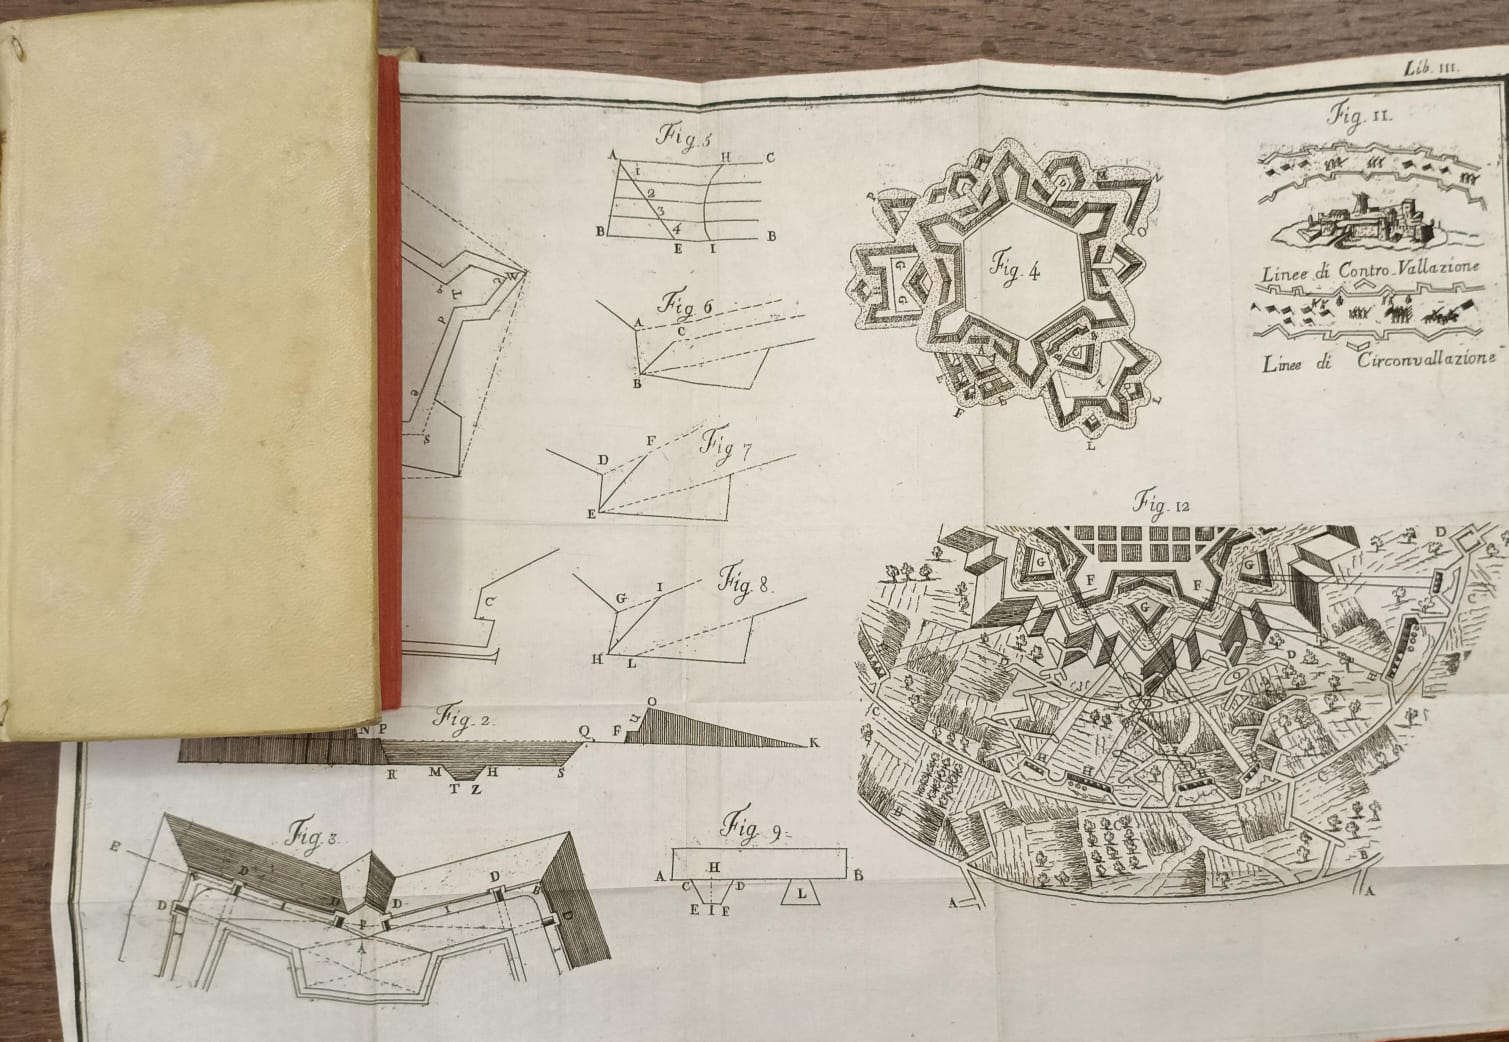 Lib. III.
Fig. 5
A H C
1
2
3
4
B E I B
Fig. 11.
Linee di Contro-Vallazione
Linee di Circonvallazione
Fig. 4
P
M
N
O
G
G
F
L
Fig. 6
A
C
B
Fig 7
D F
E
Fig. 8.
G I
H L
C
T
P
S
Fig. 2.
N P Q F O K
R M H S
T Z
Fig. 12
D
G G
F F
G
D
H
H H H
C C C
B B
A A
Fig. 3.
E
D D D D D
D B D
P
A
Fig. 9
A H B
C D L
E I F